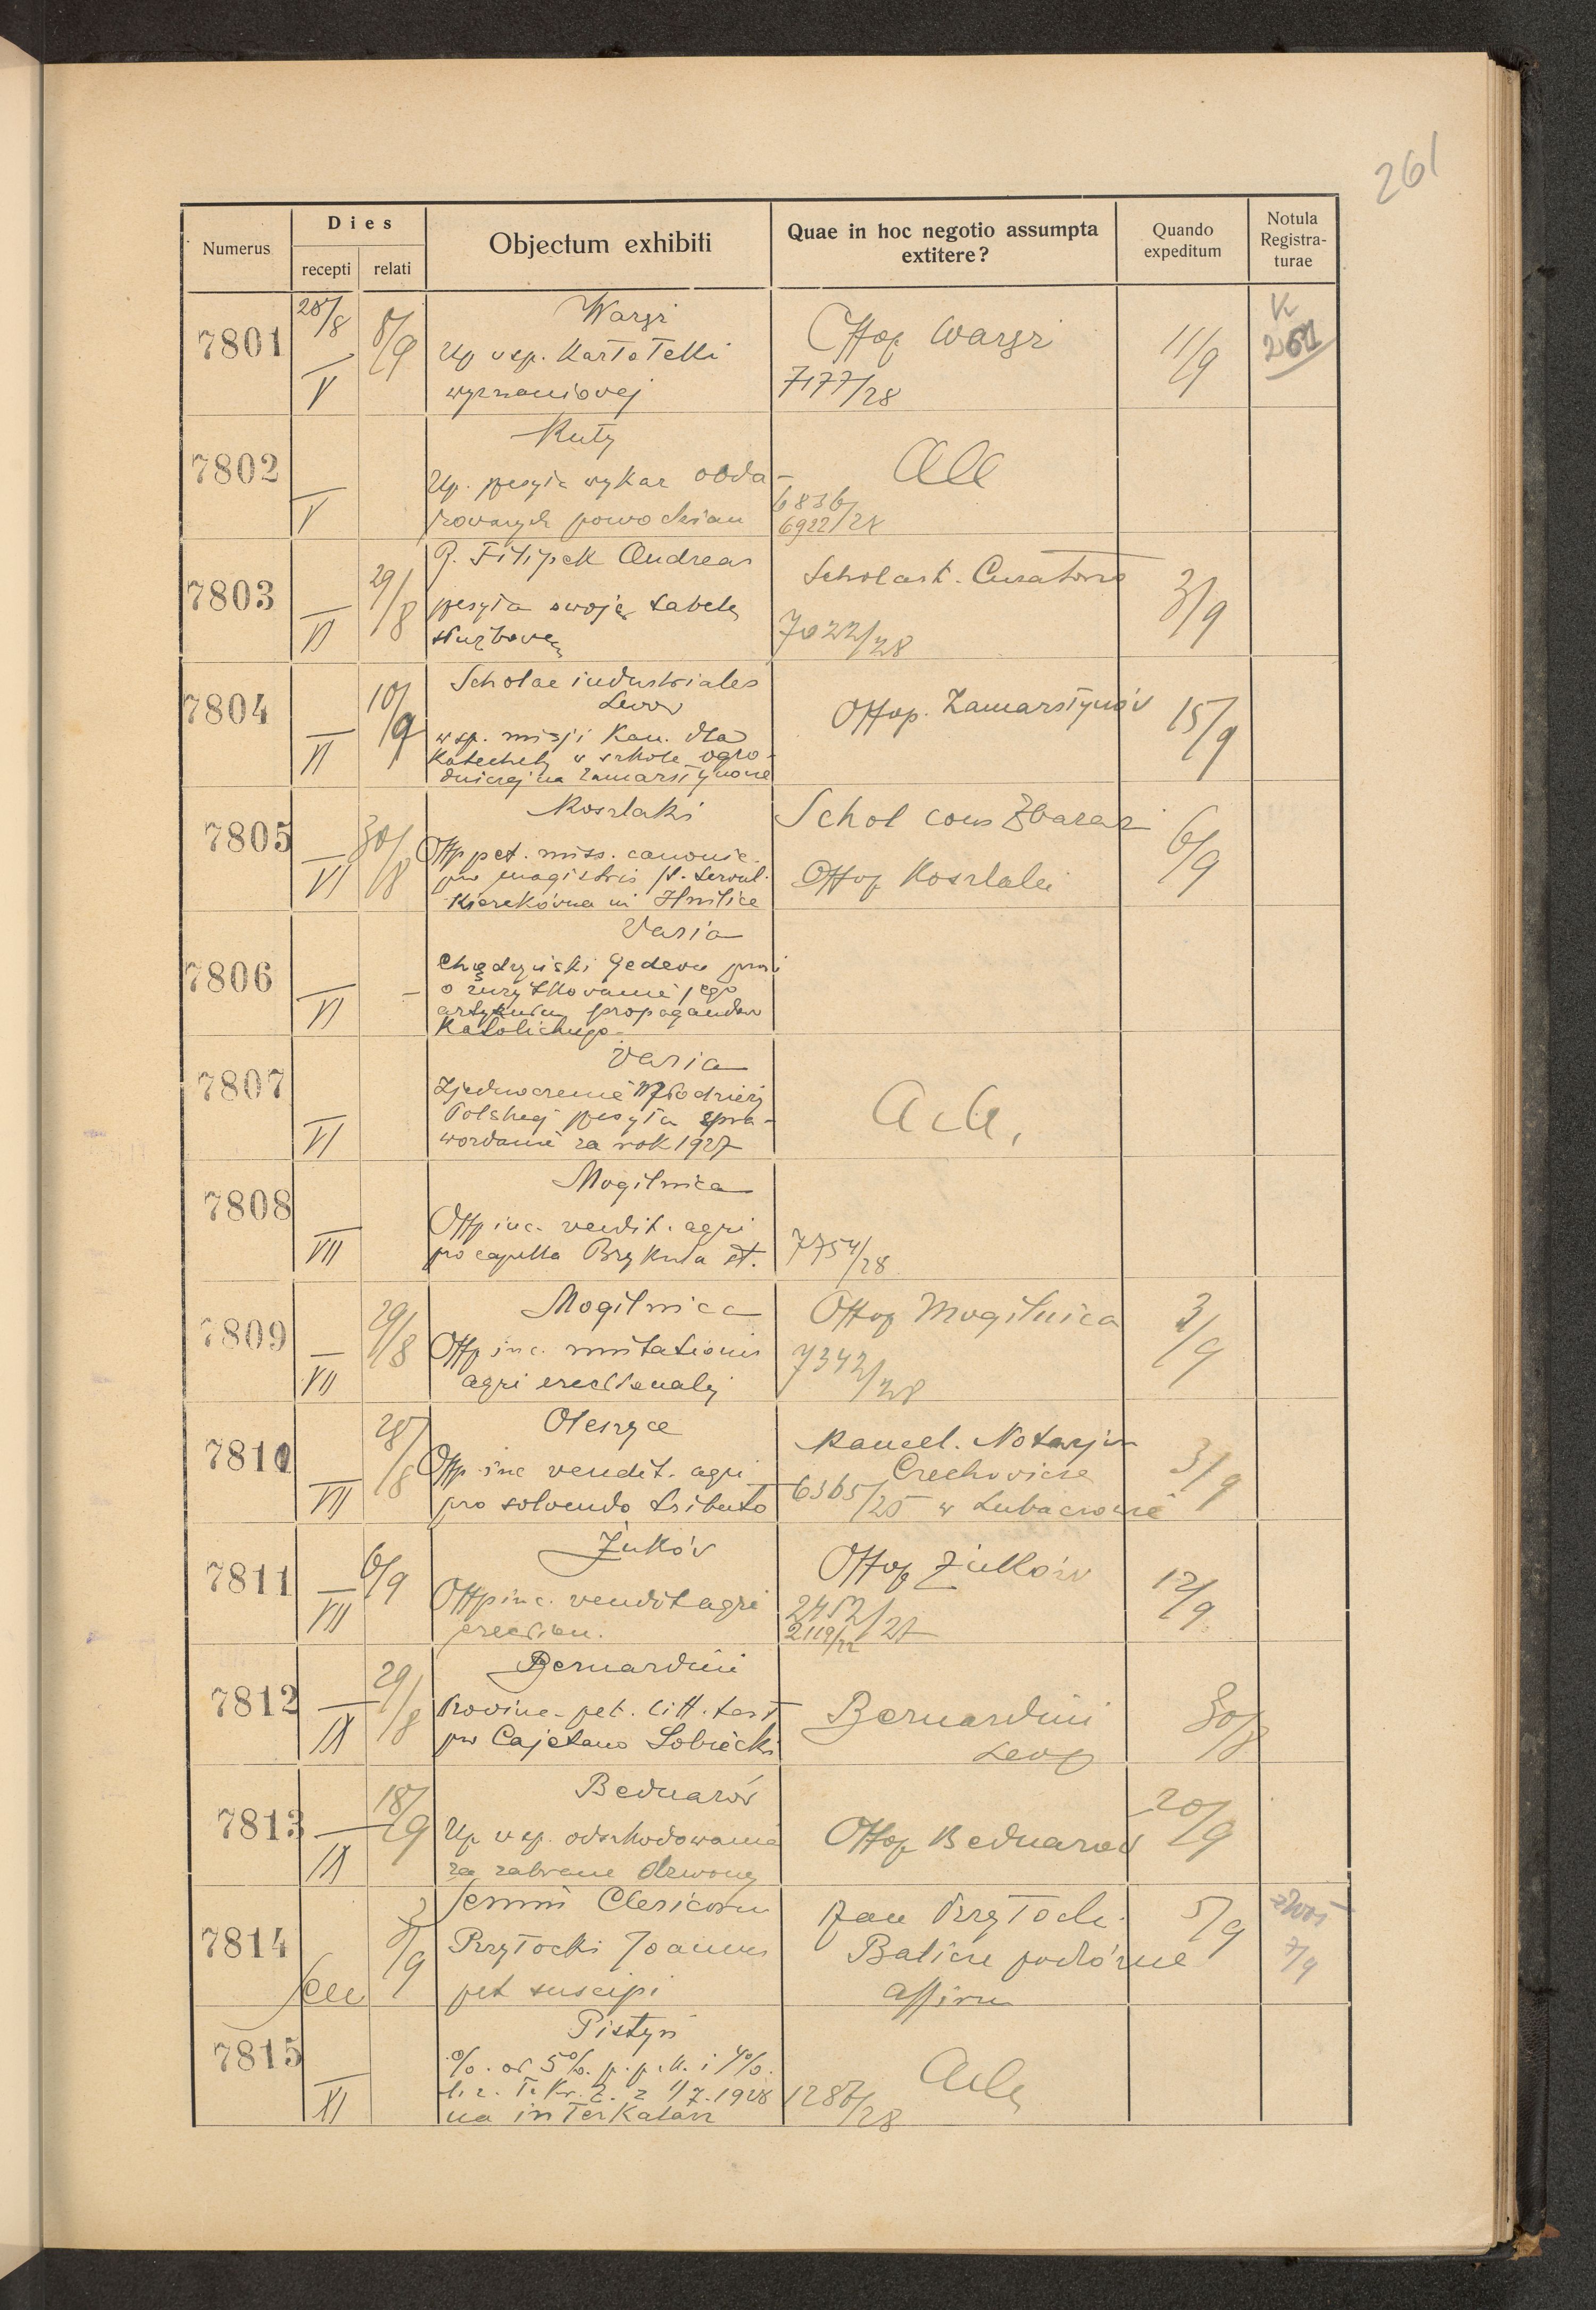 261
Numerus
Dies
recepti
relati
Objectum exhibiti
Quae in hoc negotio assumpta
extitere?
Quando
expeditum
Notula
Registra-
turae
7801
28/8
V
8/9
Waręż
Up wsp. Kartoteki
wyznaniowej
7177/28
11/9
K
261
7802
V
Kuty
Up. przesyła wykaz obda-
rowanych powodzian
6836
6922/28
7803
VI
29/8
P. Filipek Andreas
przesyła swoją tabelę
służbową
Scholast. Curatorio
7022/28
3/9
7804
VI
10/9
Scholae industriales
Lwów
wsp. misji kan. dla
Katechety w szkole ogro-
dniczej na Zamarstynowie
Offop. Zamarstynów
15/9
7805
VI
30/8
Koszlaki
Offp pet. miss. canonic.
pro magistris
in Hnilice
Schol cons Zbaraż
Offop Koszlaki
6/9
7806
VI
Varia
Gedeon prosi
o zużytkowanie jego
artykułu propagandow
Katolickiego
7807
VI
Varia
Zjednoczenie Młodzieży
Polskiej przesyła spra-
wozdanie za rok 1927
Acta,
7808
VII
Mogilnica
Offp inc. vendit. agri
pro capella Brykula st.
7754/28
7809
VII
29/8
Mogilnica
Offp inc. mutationis
agri erectionalis
Offop Mogilnica
7342/28
3/9
7810
VII
28/8
Oleszyce
Offp inc vendit. agri
pro solvendo tributo
Kancel. Notarjusz
Czechowicza
6365/25 w Lubaczowie
3/9
7811
VII
6/9
Żuków
Offp inc. vendit agri
erection.
Offop Żuków
2452/27
12/9
7812
IX
29/8
Bernardini
Provinc. pet. litt. test
pro Cajetano Sobiecki
Bernardini
Leop
30/8
7813
IX
18/9
Bednarów
Up wsp. odszkodowania
za zabrane dzwony
Offop Bednarów
20/9
7814
Sem
3/9
Semin Clericorum
Przytocki Joannes
pet suscipi
Jan Przytocki
Balice podróżne
affirm
5/9
7/9
7815
XI
Pistyń
% od 5% p. p. k. i 4%
l. z. T. Kr. Z. z 1/7.1928
na interkalarz
Acta
1286/28